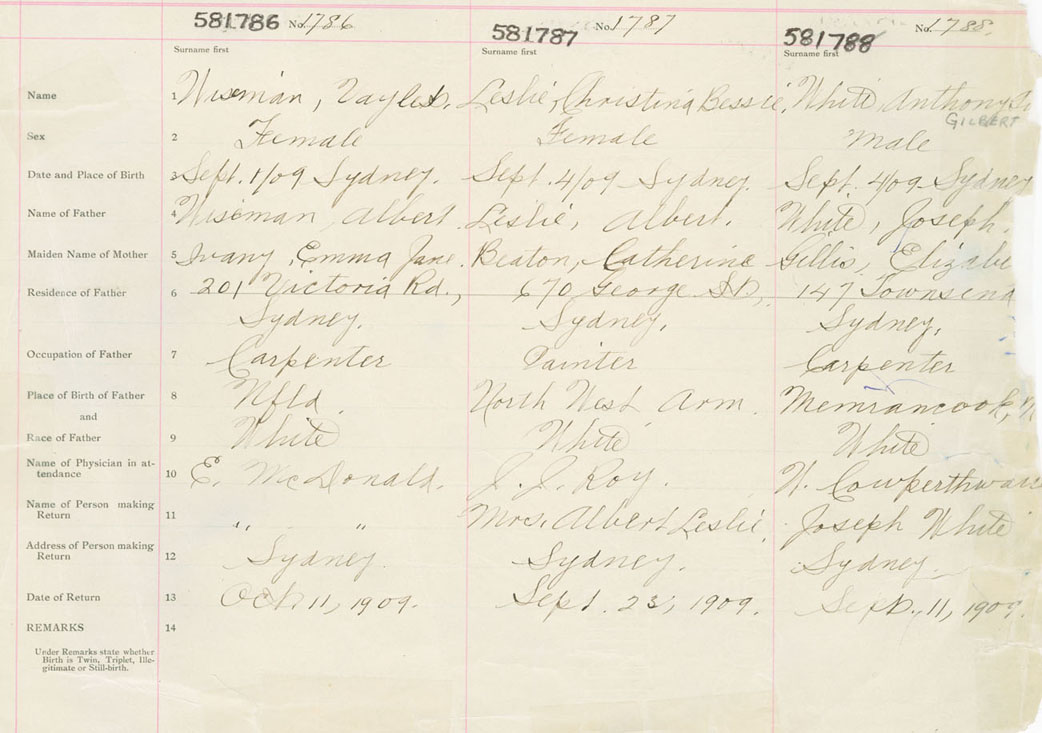 581786 No. 1786 581787 No. 1787 581788 No. 1788.
Surname first Surname first Surname first
Name 1 Wiseman, Leslie, Christina Bessie, White, Anthony
GILBERT
Sex 2 Female Female Male
Date and Place of Birth 3 Sept. 1/09 Sydney. Sept. 4/09 Sydney. Sept. 4/09 Sydney
Name of Father 4 Wiseman Albert Leslie, Albert. White, Joseph.
Maiden Name of Mother 5 Ivany, Emma Jane. Beaton, Catherine Gillis, Elizabe
Residence of Father 6 201 Victoria Rd., 670 George St., 147 Townsend
Sydney. Sydney. Sydney.
Occupation of Father 7 Carpenter Painter Carpenter
Place of Birth of Father 8 Nfld. North West Arm. Memramcook,
and
Race of Father 9 White White White
Name of Physician in at-
tendance 10 E. McDonald. J. J. Roy. Cowperthwai
Name of Person making
Return 11 " " Mrs. Albert Leslie, Joseph White
Address of Person making
Return 12 Sydney Sydney. Sydney.
Date of Return 13 Oct 11, 1909. Sept. 23, 1909. Sept., 11, 1909.
REMARKS 14
Under Remarks state whether
Birth is Twin, Triplet, Ille-
gitimate or Still-birth.